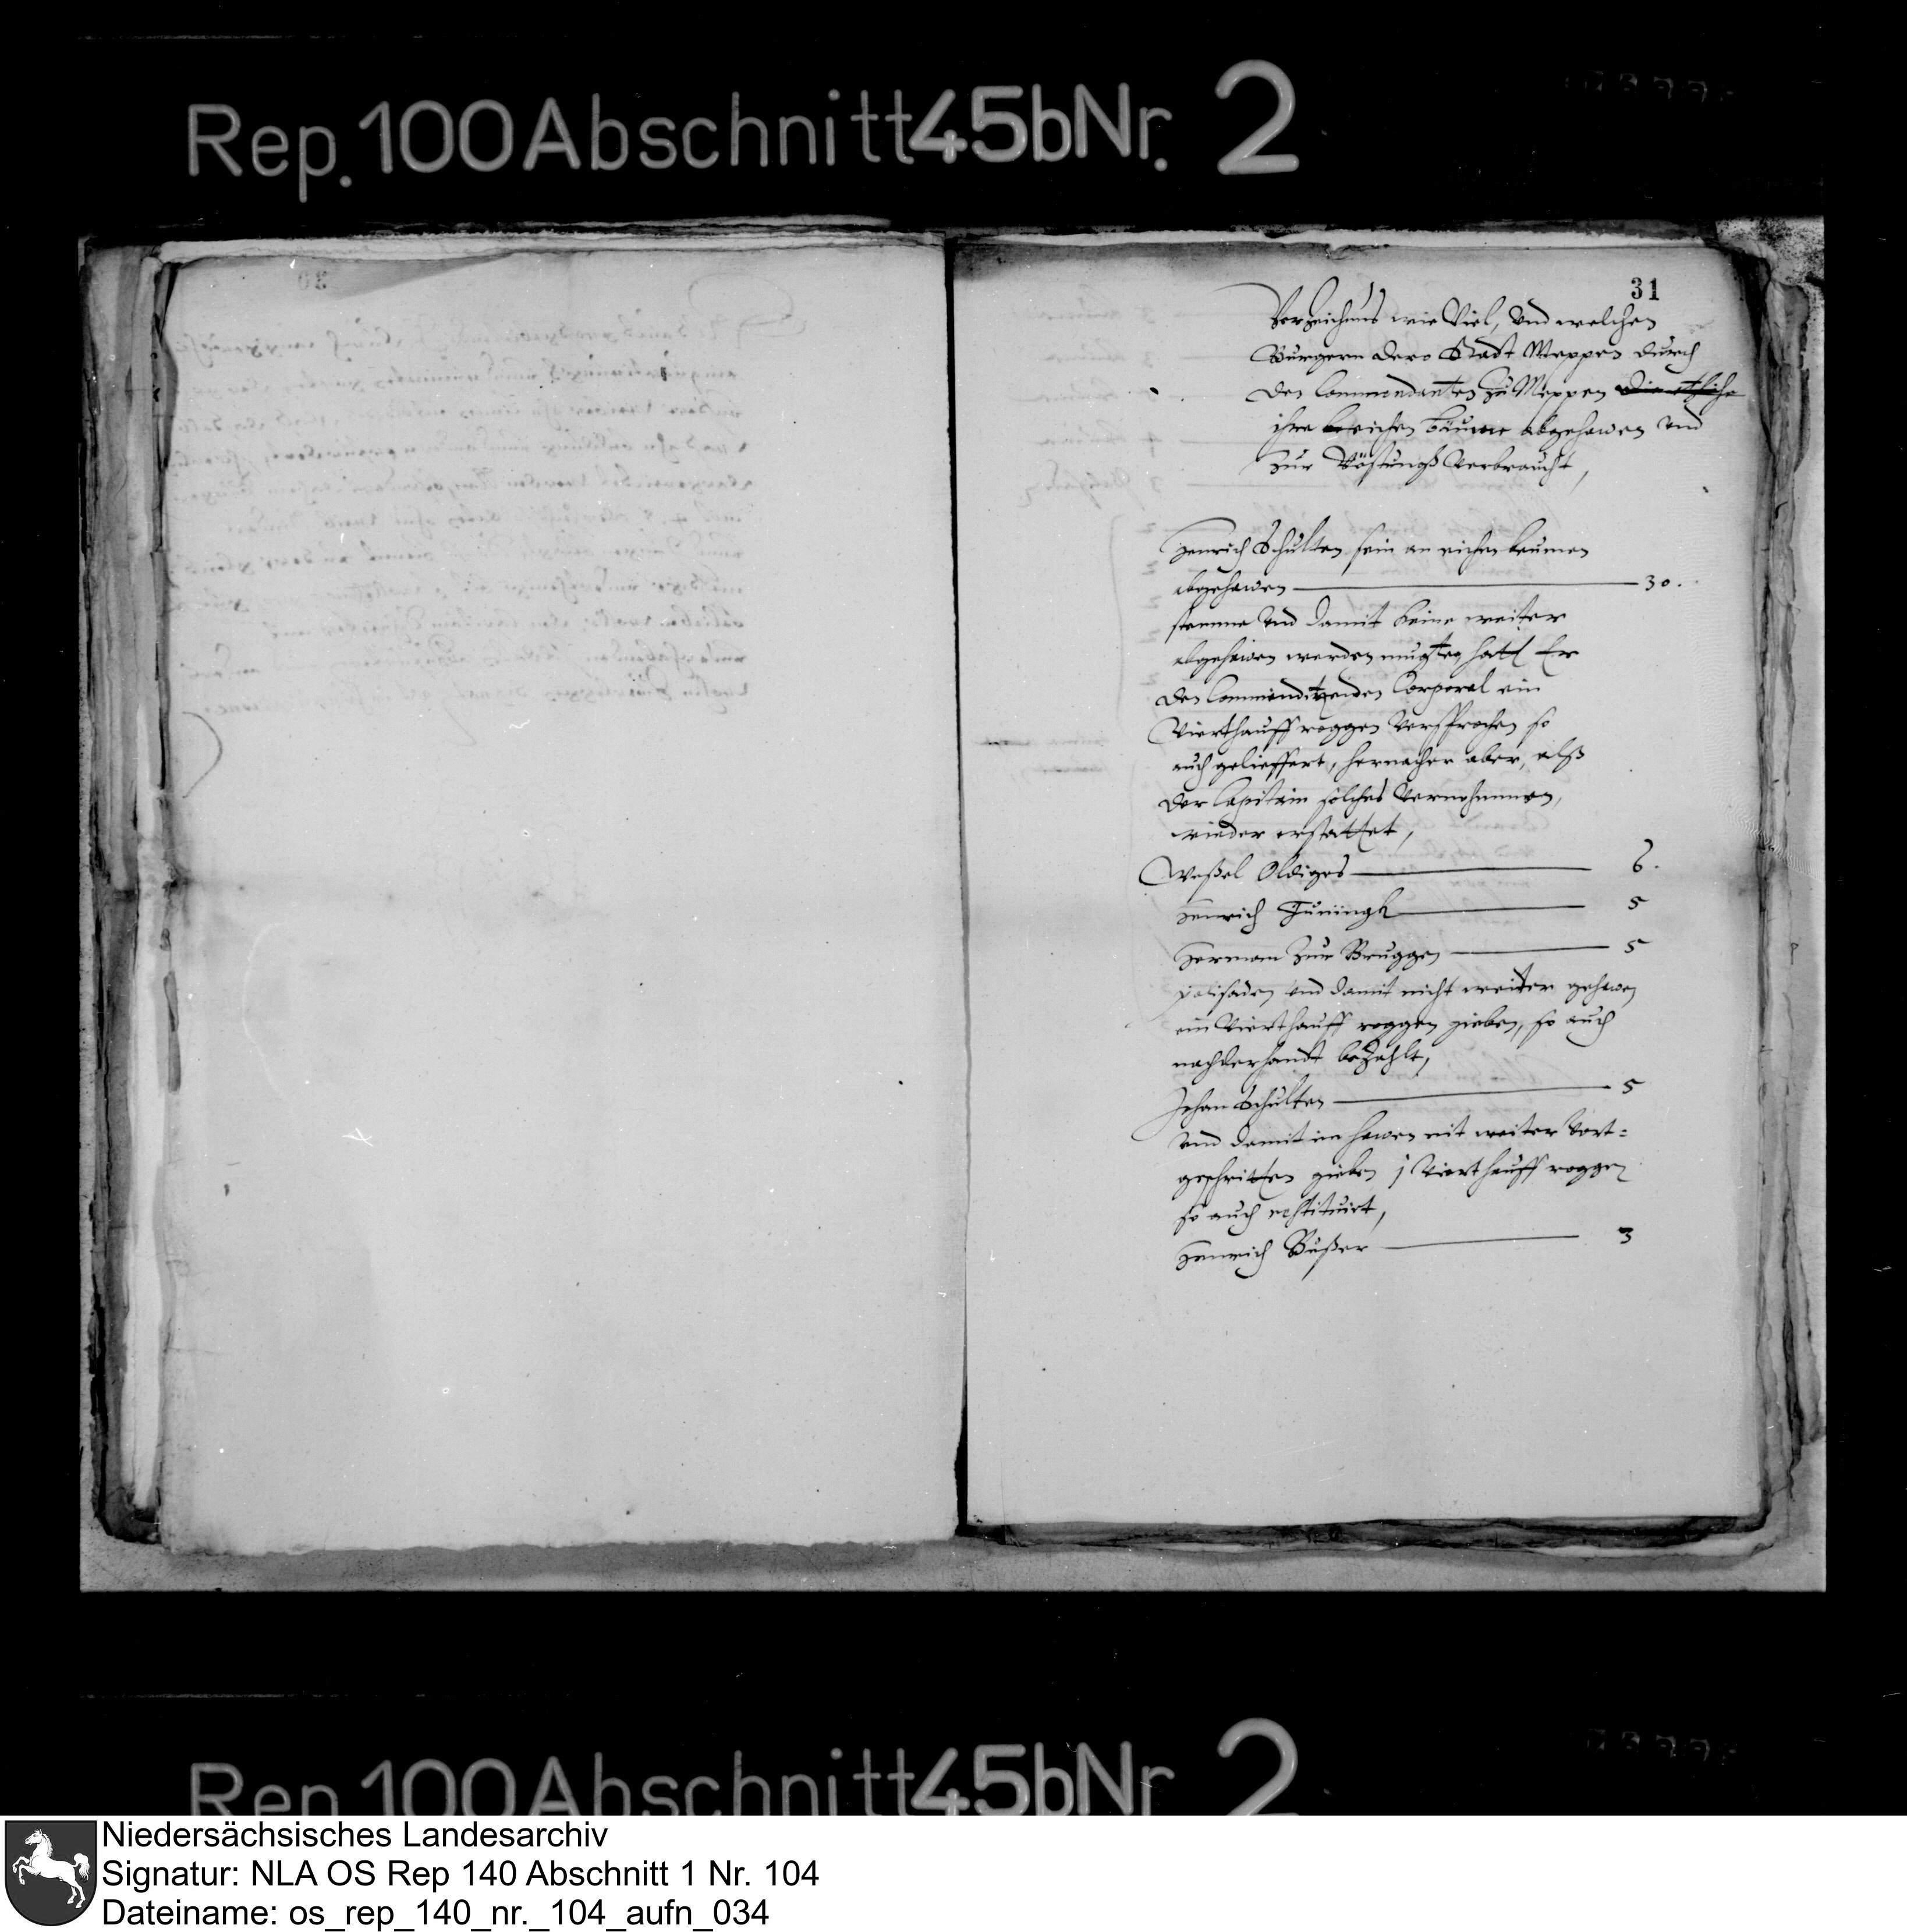 Rep. 100 Abschnitt 45b Nr. 2
31
Verzeichnus wie Viel, Vnd welchen
Burgern dero Stadt Meppen durch
den Commendanten zu Meppen die etliche
ihre eichen bäume abgehawen vnd
zur Vöstungh verbraucht,
Henrich Schulten sein an eichen beumen
abgehawen 30.
stemme vnd damit keine weiter
abgehawen werden mugten hatt Er
den Commenditzenden Corporal ein
Vierthauff roggen Versprochen so
auch gelieffert, hernacher aber, alß
der Capitain solches Vernohmmen,
wieder erstattet,
Weßel Oldiges 6.
Henrich Tüningk 5
Herman zur Bruggen 5
palisaden vnd damit nicht weiter gehawen
ein Vierthauff roggen gieben, so auch
nachderhandt bezahlt,
Johan Schulten 5
vnd damit im hawen nit weiter vort=
geschritten gieben j Vierthauff roggen
so auch restituirt,
Henrich Bußer 3
Rep. 100 Abschnitt 45b Nr. 2
Niedersächsisches Landesarchiv
Signatur: NLA OS Rep 140 Abschnitt 1 Nr. 104
Dateiname: os_rep_140_nr._104_aufn_034